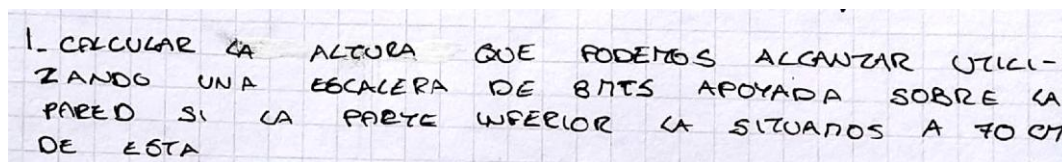 1- CALCULAR LA ALTURA QUE PODEMOS ALCANZAR UTILI-
ZANDO UNA ESCALERA DE 8 MTS APOYADA SOBRE LA
PARED SI LA PARTE INFERIOR LA SITUAMOS A 70 CM
DE ESTA